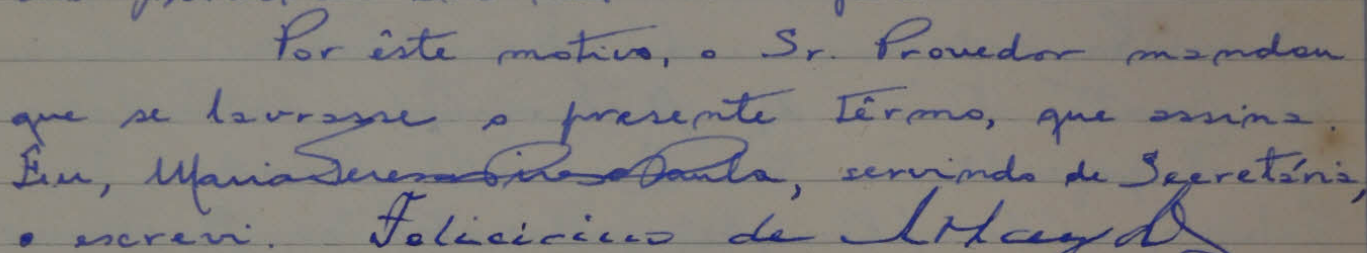 Por êste motivo, o Sr. Provedor mandou
que se lavrasse o presente têrmo, que assina.
Eu, Maria Teresa Pires Paula, servindo de Secretária,
o escrevi. de